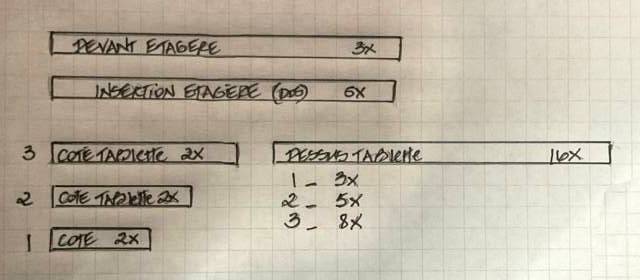 DEVANT ETAGERE 3X
INSERTION ETAGERE (DOS) 6X
3 COTE TABLETTE 2X
DESSUS TABLETTE 16X
1 - 3X
2 - 5X
3 - 8X
2 COTE TABLETTE 2X
1 COTE 2X